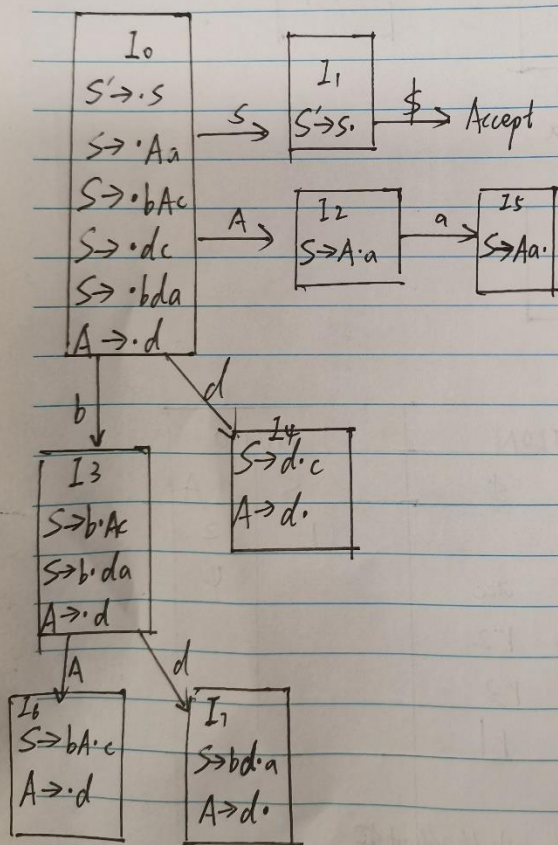 I0
S'→·s
S→·Aa
S→·bAc
S→·dc
S→·bda
A→·d
s
I1
S'→s·
$
Accept
A
I2
S→A·a
a
I5
S→Aa·
b
d
I3
S→b·Ac
S→b·da
A→·d
I4
S→d·c
A→d·
A
d
I6
S→bA·c
A→·d
I7
S→bd·a
A→d·